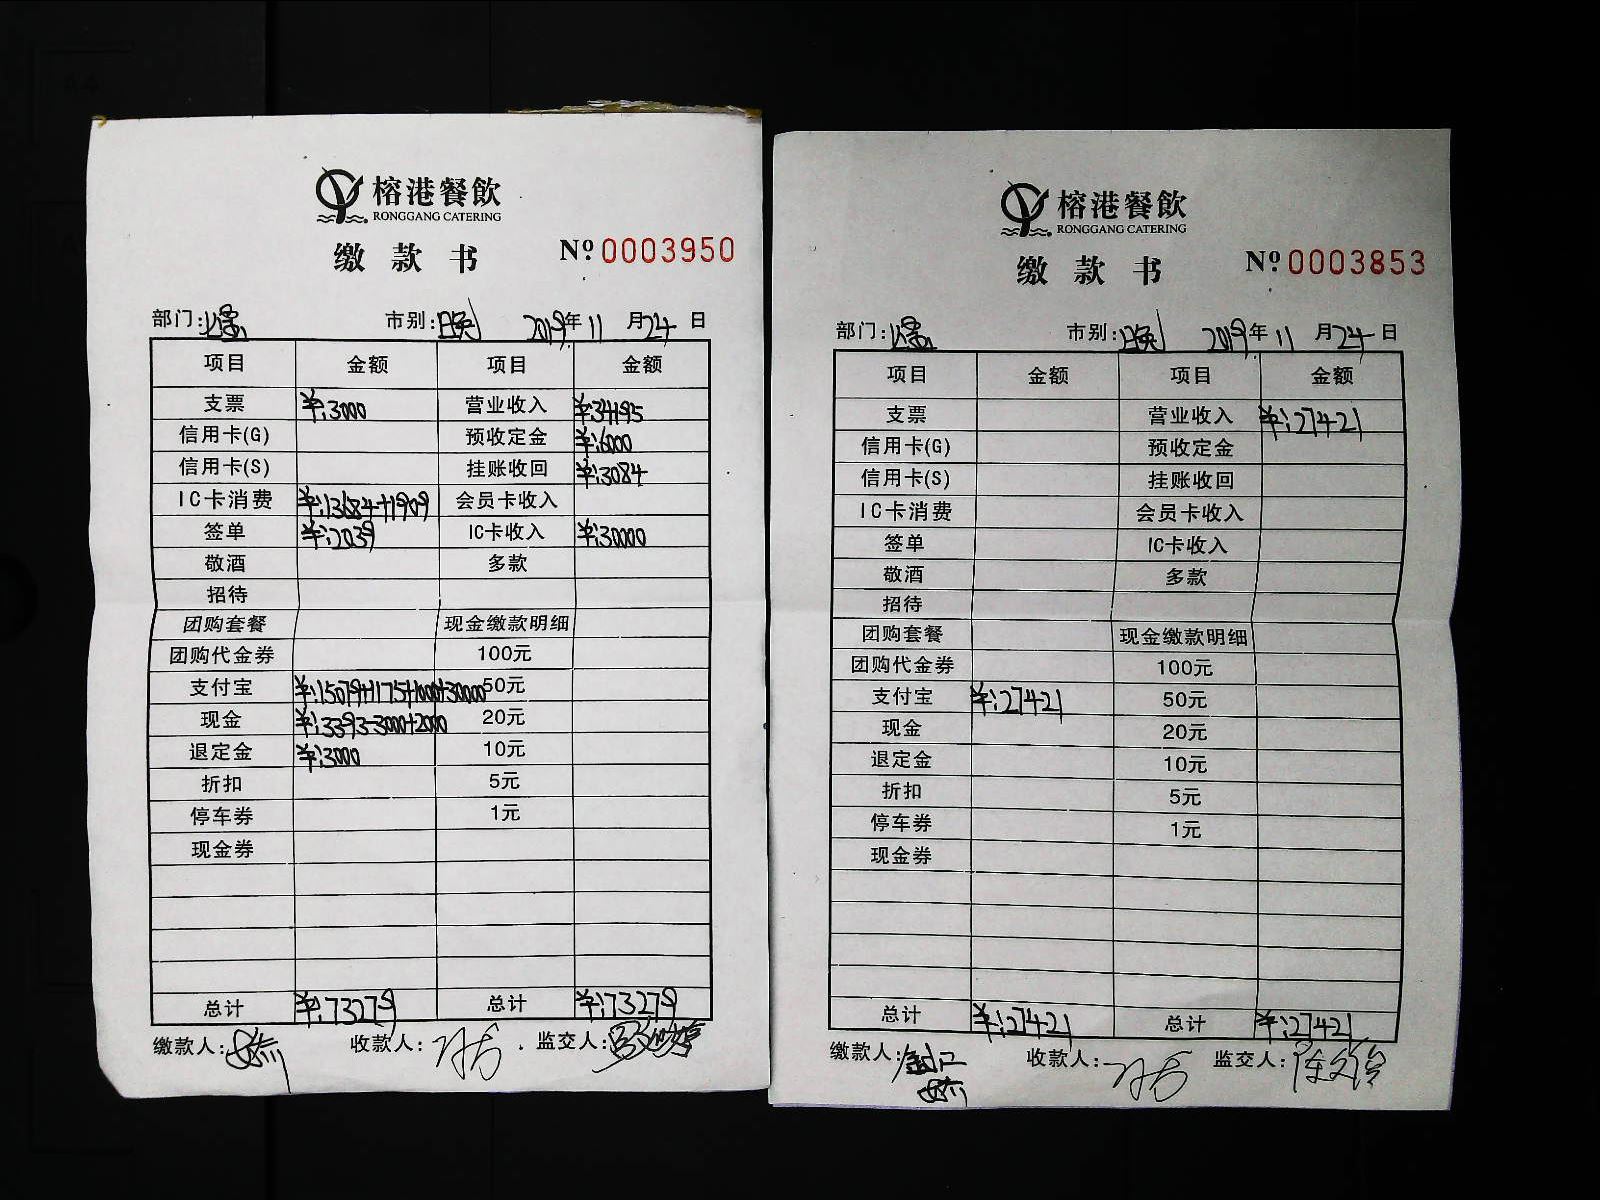 榕港餐飲
RONGGANG CATERING
缴款书 Nº 0003950
部门: 市别: 2019年11月24日
项目 金额 项目 金额
支票 ¥:3000 营业收入 ¥:34195
信用卡(G) 预收定金 ¥:6000
信用卡(S) 挂账收回 ¥:3084
IC卡消费 ¥:13684+1909 会员卡收入
签单 ¥:2039 IC卡收入 ¥:30000
敬酒 多款
招待
团购套餐 现金缴款明细
团购代金券 100元
支付宝 ¥:15079+1175+1000+30000 50元
现金 ¥:3393-3000+2000 20元
退定金 ¥:3000 10元
折扣 5元
停车券 1元
现金券
总计 ¥:73279 总计 ¥:73279
缴款人: 收款人: 监交人:
榕港餐飲
RONGGANG CATERING
缴款书 Nº 0003853
部门: 市别: 2019年11月24日
项目 金额 项目 金额
支票 营业收入 ¥:27421
信用卡(G) 预收定金
信用卡(S) 挂账收回
IC卡消费 会员卡收入
签单 IC卡收入
敬酒 多款
招待
团购套餐 现金缴款明细
团购代金券 100元
支付宝 ¥:27421 50元
现金 20元
退定金 10元
折扣 5元
停车券 1元
现金券
总计 ¥:27421 总计 ¥:27421
缴款人: 收款人: 监交人: